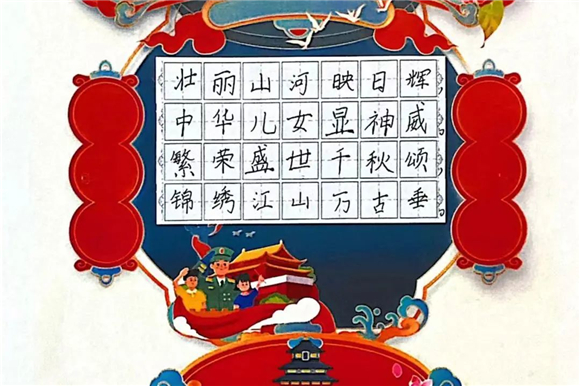 壮丽山河映日辉
中华儿女显神威
繁荣盛世千秋颂
锦绣江山万古垂